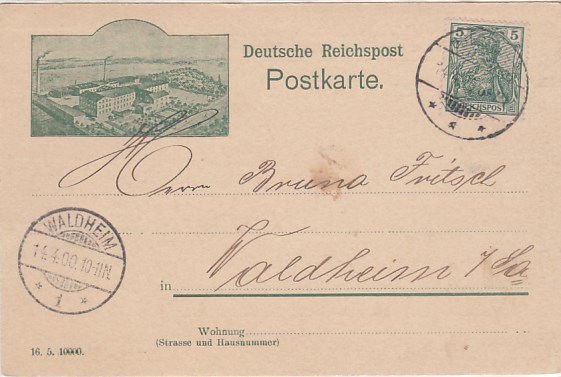 Deutsche Reichspost
Postkarte.
5 5
REICHSPOST
Herrn Bruno Fritsch
WALDHEIM
14.4.00.10-11N.
* 1 *
in Waldheim i/Sa
Wohnung
(Strasse und Hausnummer)
16. 5. 10000.